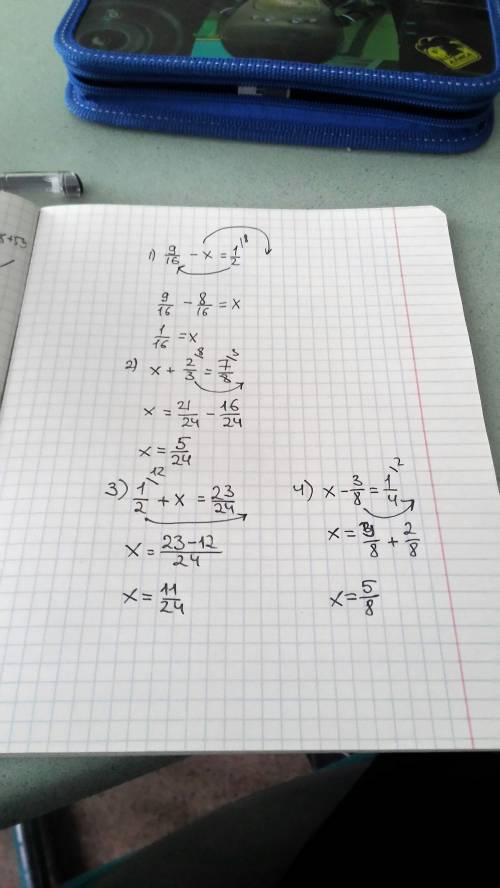 8+53
1) 9/16 - x = 1/2 \8
9/16 - 8/16 = x
1/16 = x
2) x + 2/3 \8 = 7/8 \3
x = 21/24 - 16/24
x = 5/24
3) 1/2 \12 + x = 23/24
x = 23-12/24
x = 11/24
4) x - 3/8 = 1/4 \2
x = 3/8 + 2/8
x = 5/8